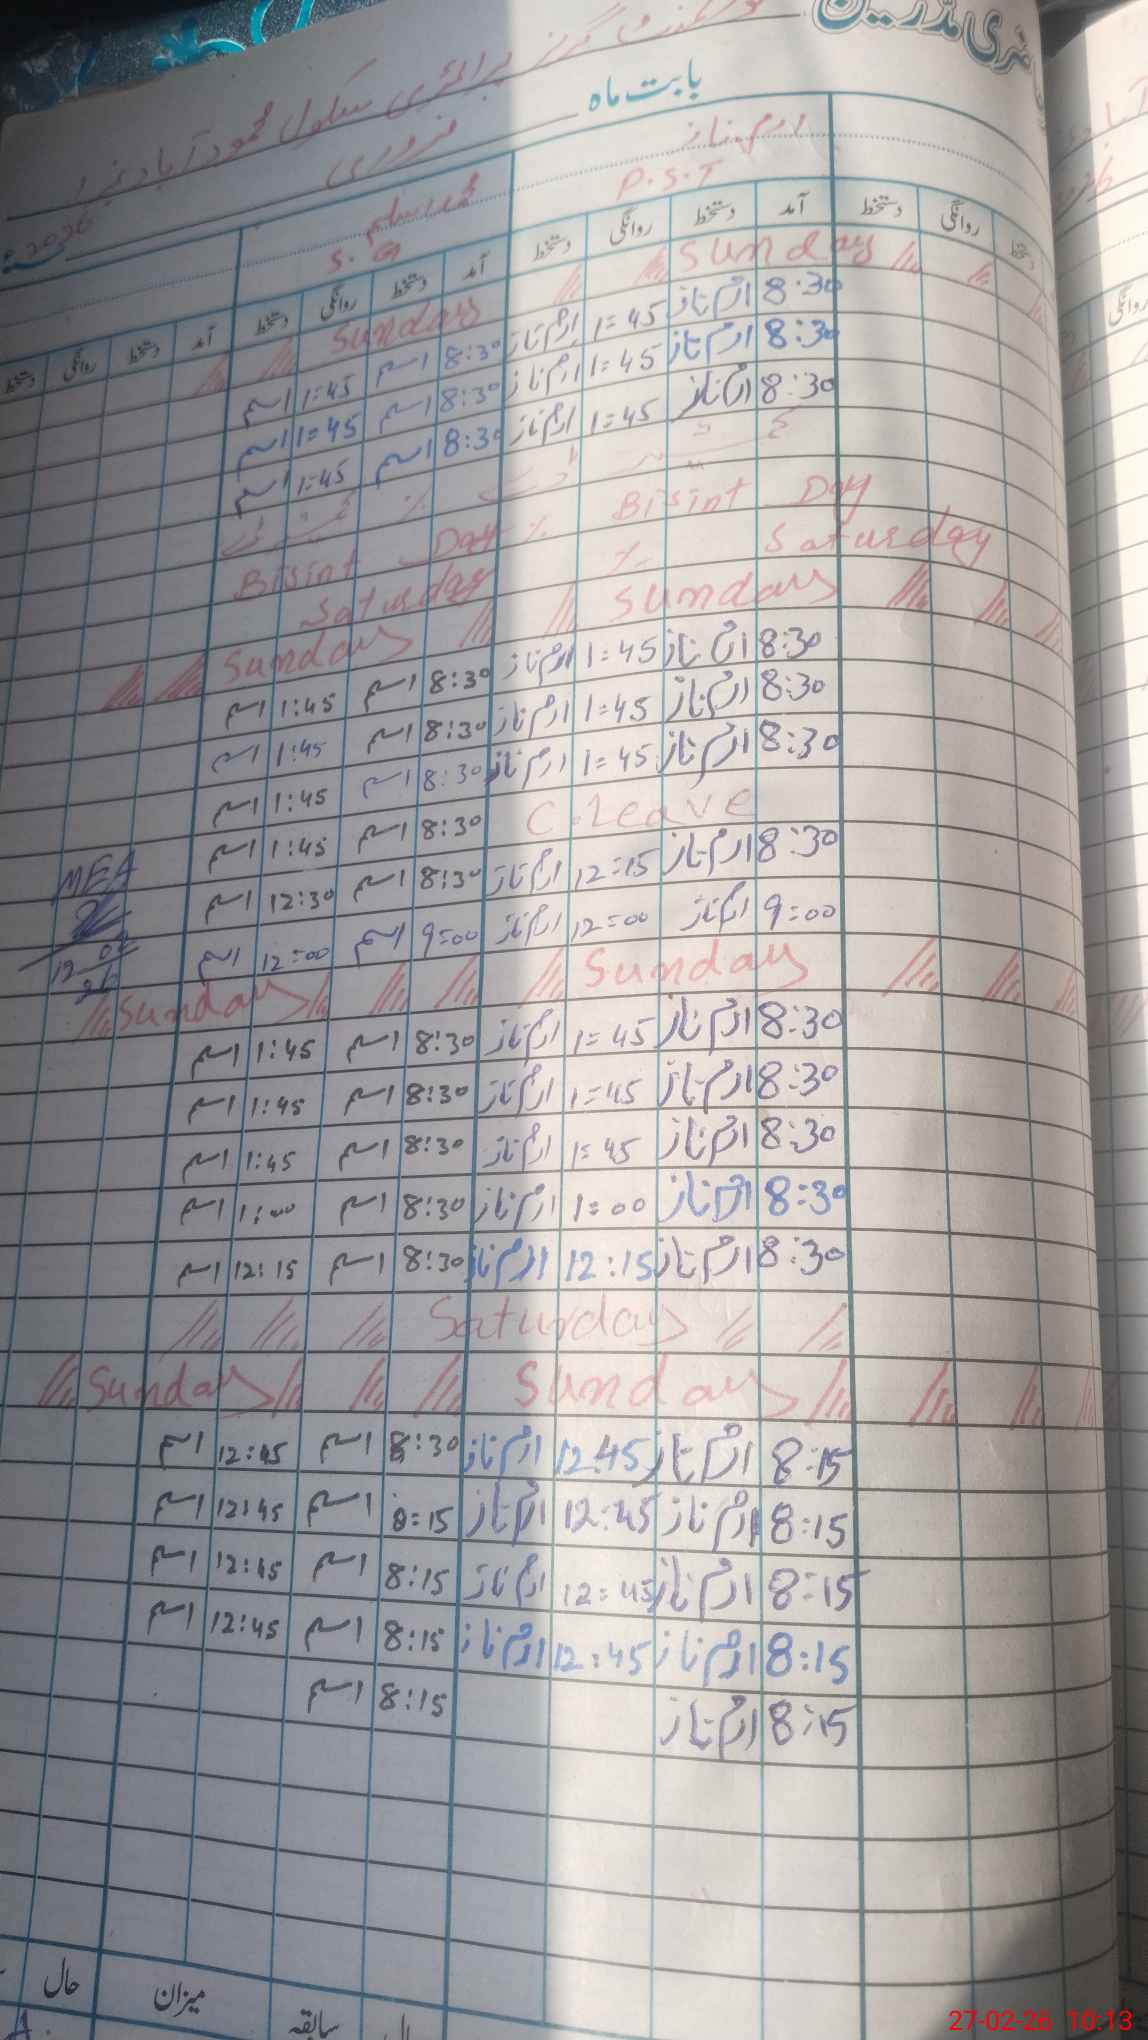 حاضری مدرسین
گورنمنٹ گرلز پرائمری سکول محمود آباد نمبر 1
بابت ماہ فروری 2026
ارم ناز
P.S.T
محمد اسلم
S.G
آمد دستخط روانگی دستخط آمد دستخط روانگی دستخط آمد دستخط روانگی دستخط
Sunday Sunday
8:30 ارم ناز 1=45 ارم ناز 8:30 اسلم 1:45 اسلم
8:30 ارم ناز 1=45 ارم ناز 8:30 اسلم 1=45 اسلم
8:30 ارم ناز 1=45 ارم ناز 8:30 اسلم 1:45 اسلم
Bisint Day Bisint Day
Saturday Saturday
Sunday Sunday
8:30 ارم ناز 1=45 ارم ناز 8:30 اسلم 1:45 اسلم
8:30 ارم ناز 1=45 ارم ناز 8:30 اسلم 1:45 اسلم
8:30 ارم ناز 1=45 ارم ناز 8:30 اسلم 1:45 اسلم
C.Leave 8:30 اسلم 1:45 اسلم
8:30 ارم ناز 12:15 ارم ناز 8:30 اسلم 12:30 اسلم
MEA
9=00 ارم ناز 12=00 ارم ناز 9=00 اسلم 12=00 اسلم
Sunday Sunday
8:30 ارم ناز 1=45 ارم ناز 8:30 اسلم 1:45 اسلم
8:30 ارم ناز 1=45 ارم ناز 8:30 اسلم 1:45 اسلم
8:30 ارم ناز 1=45 ارم ناز 8:30 اسلم 1:45 اسلم
8:30 ارم ناز 1=00 ارم ناز 8:30 اسلم 1:00 اسلم
8:30 ارم ناز 12:15 ارم ناز 8:30 اسلم 12:15 اسلم
Saturday
Sunday Sunday
8:15 ارم ناز 12:45 ارم ناز 8:30 اسلم 12:45 اسلم
8:15 ارم ناز 12:45 ارم ناز 8:15 اسلم 12:45 اسلم
8:15 ارم ناز 12:45 ارم ناز 8:15 اسلم 12:45 اسلم
8:15 ارم ناز 12:45 ارم ناز 8:15 اسلم 12:45 اسلم
8:15 ارم ناز 8:15 اسلم
سابقہ میزان حال
27-02-26 10:13